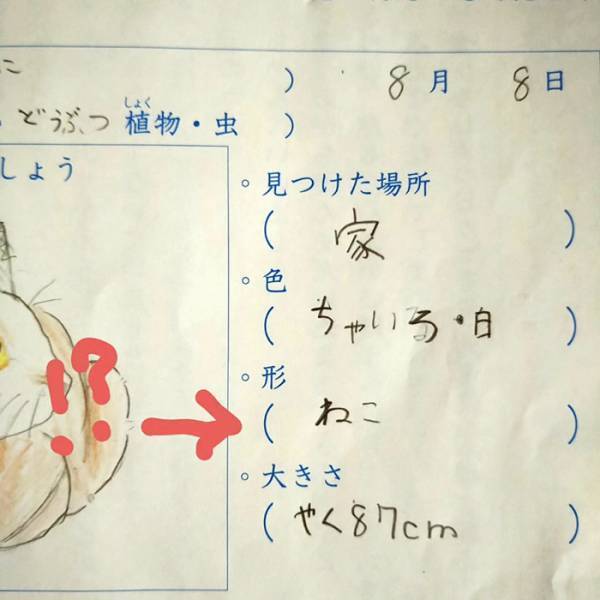 こ ) 8月 8日
どうぶつ 植物・虫 )
しょく
しょう
。見つけた場所
( 家 )
。色
( ちゃいろ・白 )
。形
( ねこ )
。大きさ
( やく87cm )
!?